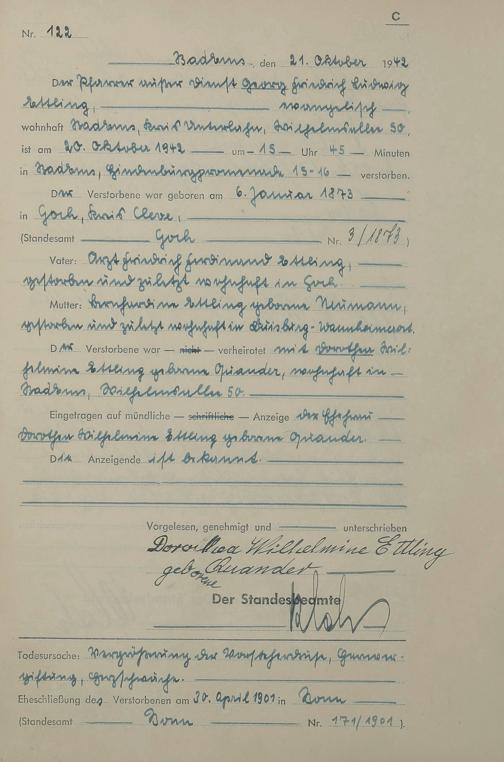 C
Nr. 122
Bad Ems, den 21. Oktober 1942
Der Pfarrer außer Dienst Georg Friedrich Ludwig
Ettling, evangelisch
wohnhaft Bad Ems, Kreis Unterlahn, Wilhelmsallee 50,
ist am 20. Oktober 1942 um 15 Uhr 45 Minuten
in Bad Ems, Hindenburgpromenade 15-16 verstorben.
Der Verstorbene war geboren am 6. Januar 1873
in Goch, Kreis Cleve,
(Standesamt Goch Nr. 3/1873)
Vater: Arzt Friedrich Ferdinand Ettling,
gestorben und zuletzt wohnhaft in Goch.
Mutter: Bernhardine Ettling geborene Neumann,
gestorben und zuletzt wohnhaft in Duisburg-Wanheimerort.
Der Verstorbene war — nicht — verheiratet mit Dorothea Wil-
helmine Ettling geborene Quander, wohnhaft in
Bad Ems, Wilhelmsallee 50.
Eingetragen auf mündliche — schriftliche — Anzeige der Ehefrau
Dorothea Wilhelmine Ettling geborene Quander.
Die Anzeigende ist bekannt.
Vorgelesen, genehmigt und unterschrieben
Dorothea Wilhelmine Ettling
geborene Quander
Der Standesbeamte
Todesursache: Vergrößerung der Vorsteherdrüse, Harnver-
giftung, Herzschwäche.
Eheschließung des Verstorbenen am 30. April 1901 in Bonn
(Standesamt Bonn Nr. 171/1901).